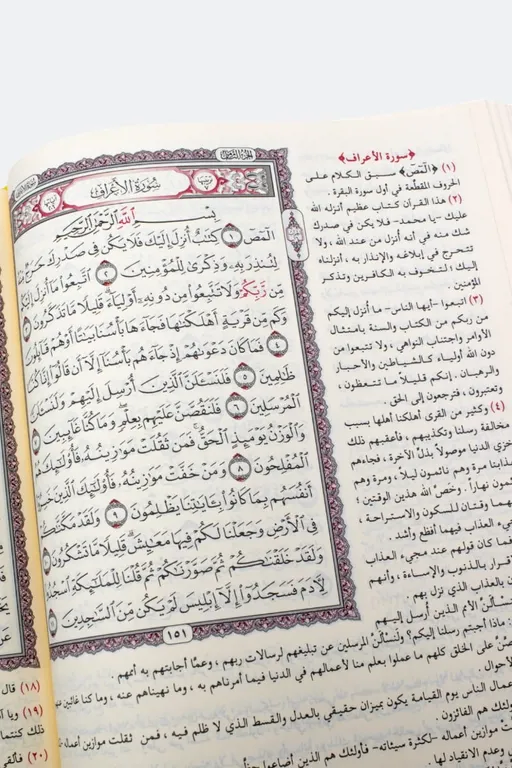 الجزء الثامن
سُورَةُ الأَعْرَافِ
بِسْمِ اللَّهِ الرَّحْمَٰنِ الرَّحِيمِ
الٓمٓصٓ ١ كِتَٰبٌ أُنزِلَ إِلَيْكَ فَلَا يَكُن فِى صَدْرِكَ حَرَجٌ
لِتُنذِرَ بِهِۦ وَذِكْرَىٰ لِلْمُؤْمِنِينَ ٢ ٱتَّبِعُوا۟ مَآ أُنزِلَ إِلَيْكُم
مِّن رَّبِّكُمْ وَلَا تَتَّبِعُوا۟ مِن دُونِهِۦٓ أَوْلِيَآءَ قَلِيلًا مَّا تَذَكَّرُونَ
وَكَم مِّن قَرْيَةٍ أَهْلَكْنَٰهَا فَجَآءَهَا بَأْسُنَا بَيَٰتًا أَوْ هُمْ قَآئِلُونَ
٤ فَمَا كَانَ دَعْوَىٰهُمْ إِذْ جَآءَهُم بَأْسُنَآ إِلَّآ أَن قَالُوٓا۟ إِنَّا كُنَّا
ظَٰلِمِينَ ٥ فَلَنَسْـَٔلَنَّ ٱلَّذِينَ أُرْسِلَ إِلَيْهِمْ وَلَنَسْـَٔلَنَّ
ٱلْمُرْسَلِينَ ٦ فَلَنَقُصَّنَّ عَلَيْهِم بِعِلْمٍ وَمَا كُنَّا غَآئِبِينَ
وَٱلْوَزْنُ يَوْمَئِذٍ ٱلْحَقُّ فَمَن ثَقُلَتْ مَوَٰزِينُهُۥ فَأُو۟لَٰٓئِكَ هُمُ
ٱلْمُفْلِحُونَ ٨ وَمَنْ خَفَّتْ مَوَٰزِينُهُۥ فَأُو۟لَٰٓئِكَ ٱلَّذِينَ
أَنفُسَهُم بِمَا كَانُوا۟ بِـَٔايَٰتِنَا يَظْلِمُونَ ٩ وَلَقَدْ مَكَّنَّٰكُمْ
فِى ٱلْأَرْضِ وَجَعَلْنَا لَكُمْ فِيهَا مَعَٰيِشَ قَلِيلًا مَّا تَشْكُرُونَ
وَلَقَدْ خَلَقْنَٰكُمْ ثُمَّ صَوَّرْنَٰكُمْ ثُمَّ قُلْنَا لِلْمَلَٰٓئِكَةِ ٱسْجُدُوا۟
لِـَٔادَمَ فَسَجَدُوٓا۟ إِلَّآ إِبْلِيسَ لَمْ يَكُن مِّنَ ٱلسَّٰجِدِينَ
١٥١
﴿سورة الأعراف﴾
(١) ﴿الٓمٓصٓ﴾ سبق الكلام على
الحروف المقطَّعة في أول سورة البقرة.
(٢) هذا القرآن كتاب عظيم أنزله الله
عليك -يا محمد- فلا يكن في صدرك
شك منه في أنه أنزل من عند الله، ولا
تتحرج في إبلاغه والإنذار به، أنزلناه
إليك؛ لتخوف به الكافرين وتذكر
المؤمنين.
(٣) اتبعوا -أيها الناس- ما أنزل إليكم
من ربكم من الكتاب والسنة بامتثال
الأوامر واجتناب النواهي، ولا تتبعوا من
دون الله أولياء كالشياطين والأحبار
والرهبان. إنكم قليلاً ما تتعظون،
وتعتبرون، فترجعون إلى الحق.
(٤) وكثير من القرى أهلكنا أهلها بسبب
مخالفة رسلنا وتكذيبهم، فأعقبهم ذلك
خزي الدنيا موصولاً بذلّ الآخرة، فجاءهم
عذابنا مرة وهم نائمون ليلاً، ومرة وهم
نائمون نهاراً. وخص الله هذين الوقتين؛
وقتان للسكون والاستراحة،
فمجيء العذاب فيهما أفظع وأشد.
فما كان قولهم عند مجيء العذاب
إقرار بالذنوب والإساءة، وأنهم
بالعذاب الذي نزل بهم.
فلنسألنَّ الأمم الذين أرسل إليهم
: ماذا أجبتم رسلنا إليكم؟ ولنسألنَّ المرسلين عن تبليغهم لرسالات ربهم، وعمَّا أجابتهم به أممهم.
على الخلق كلهم ما عملوا بعلم منا لأعمالهم في الدنيا فيما أمرناهم به، وما نهيناهم عنه، وما كنا غائبين
الأحوال.
أعمال الناس يوم القيامة يكون بميزان حقيقي بالعدل والقسط الذي لا ظلم فيه، فمن ثقلت موازين أعماله
هم الفائزون.
موازين أعماله -لكثرة سيئاته- فأولئك هم الذين أضاعوا
، وعدم الانقياد لها.
(١٨) قال
(١٩) ويا
ذلك كنتما
(٢٠) فألقى